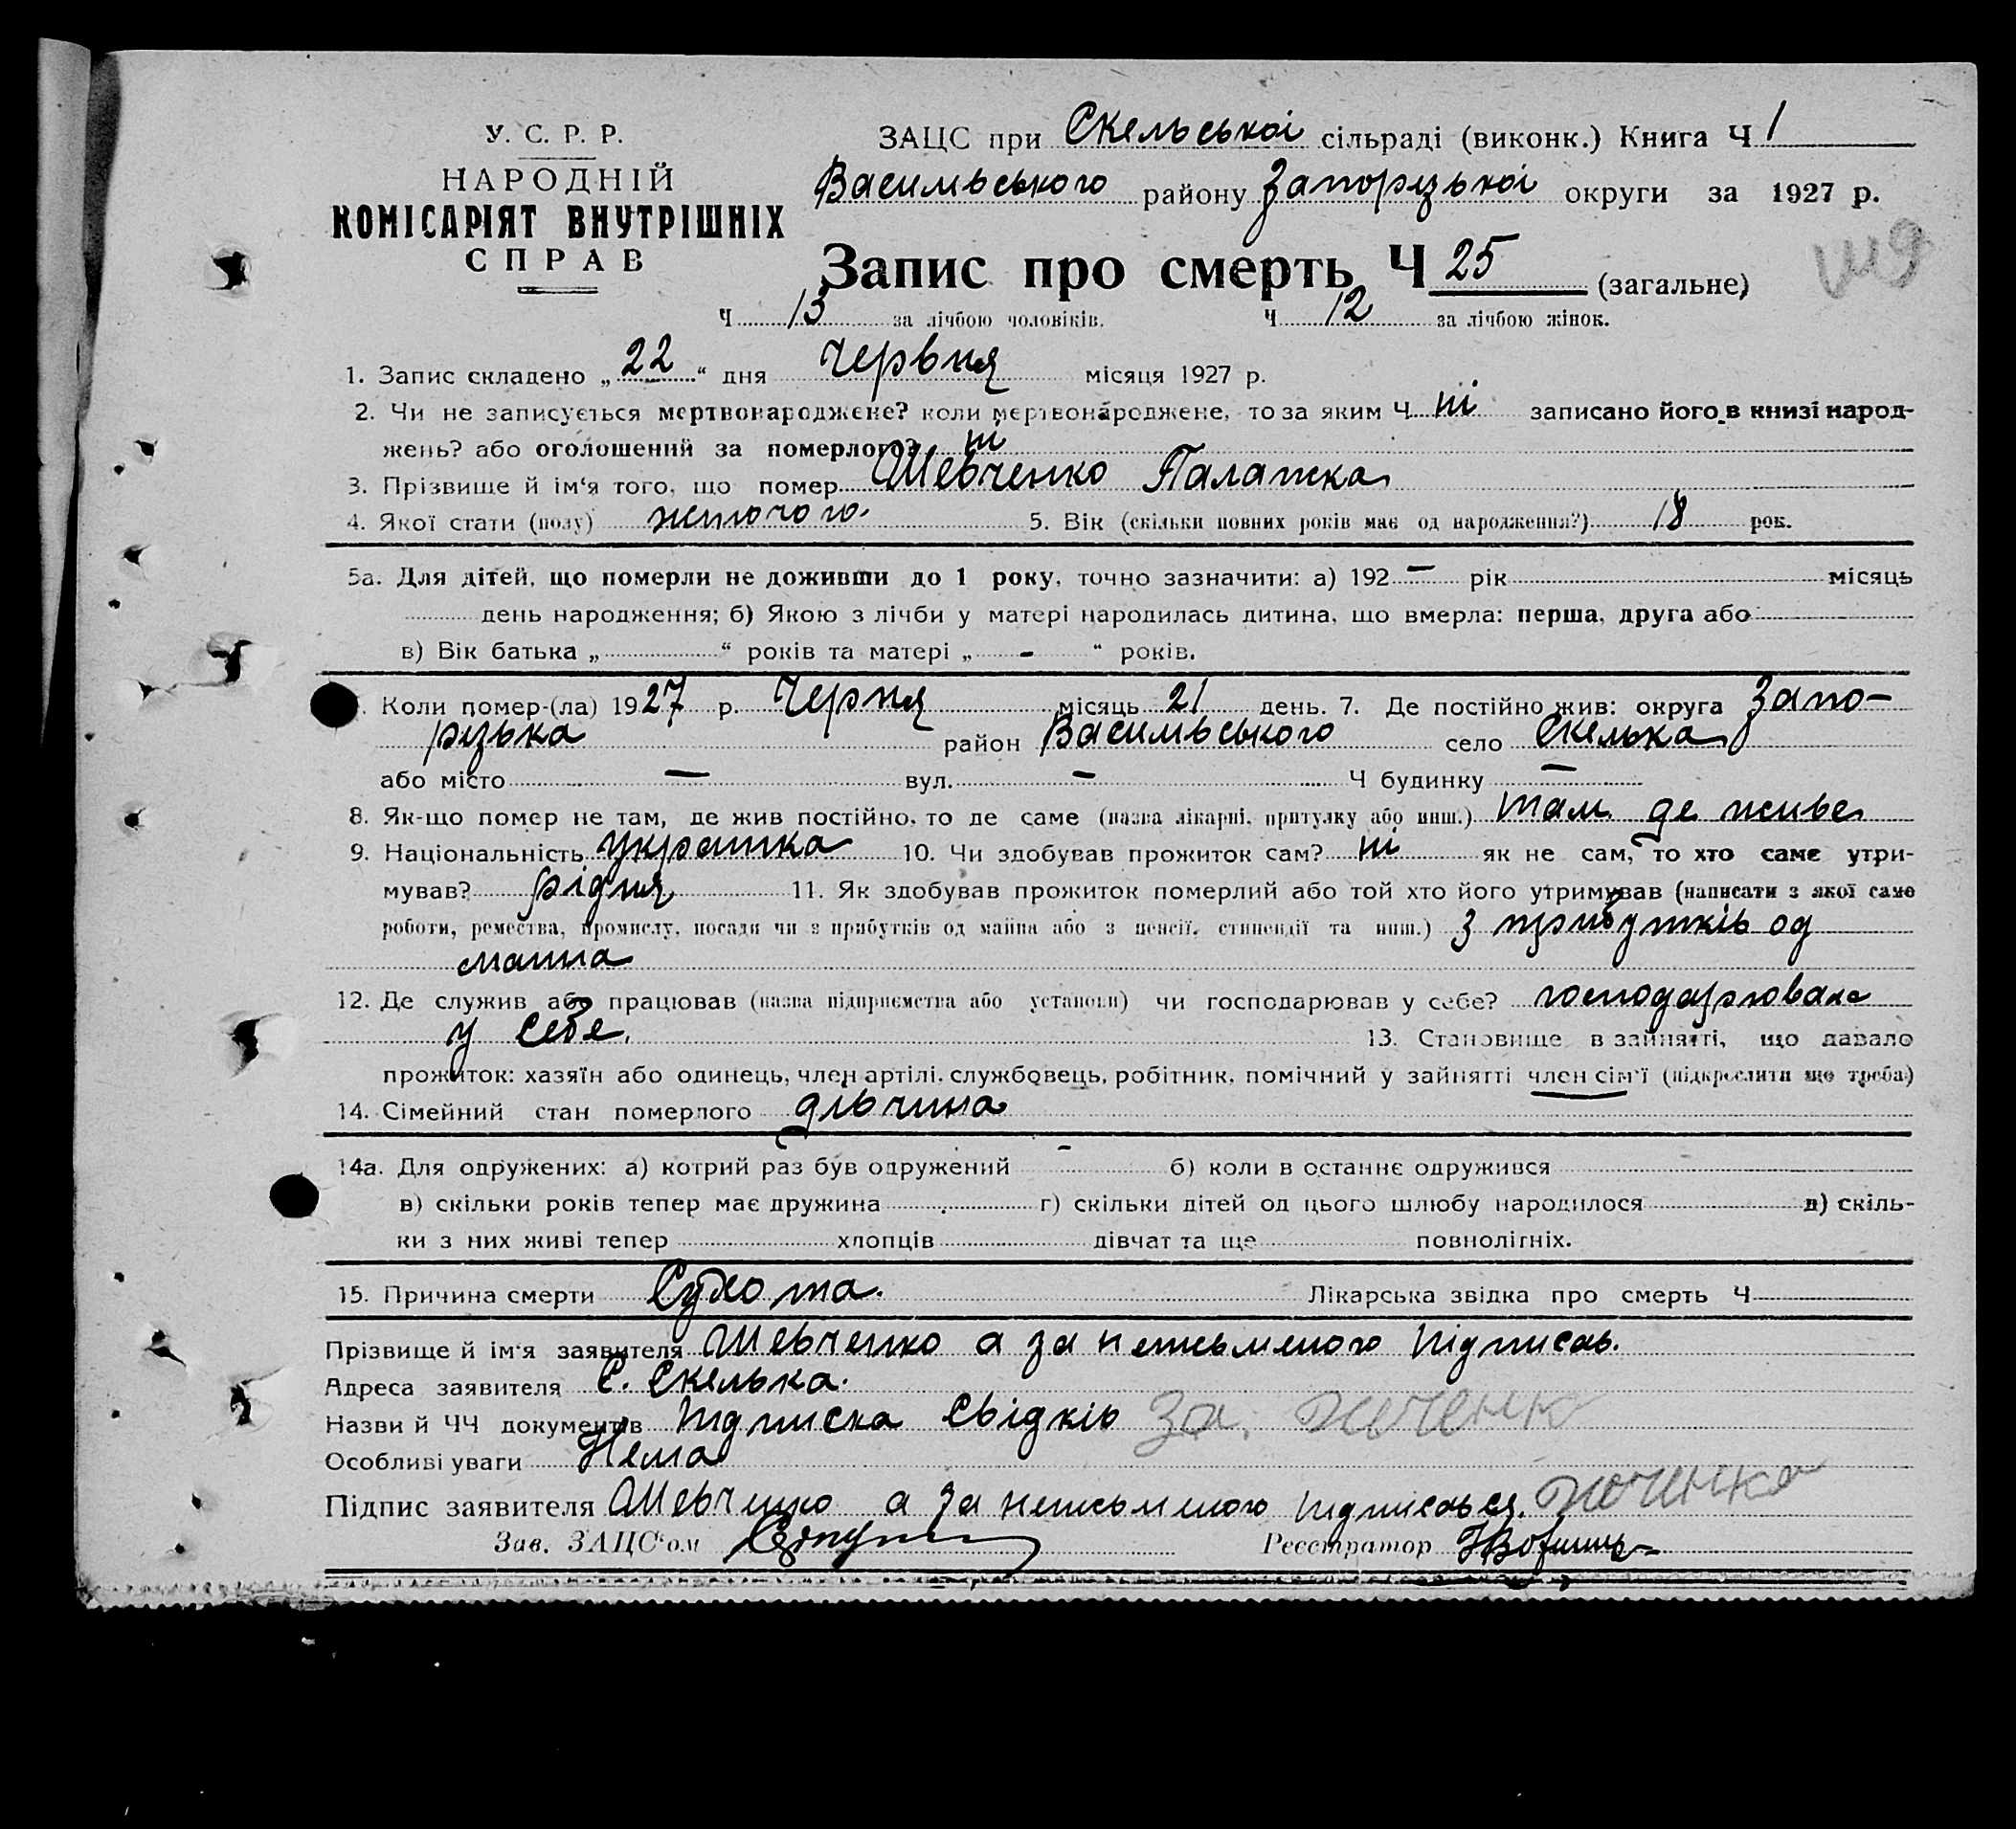 У. С. Р. Р.
НАРОДНІЙ
КОМІСАРІЯТ ВНУТРІШНІХ
СПРАВ
ЗАЦС при Скельської сільраді (виконк.) Книга Ч 1
Васильвського району Запорізької округи за 1927 р.
Запис про смерть Ч 25 (загальне)
Ч 13 за лічбою чоловіків. Ч 12 за лічбою жінок.
1. Запис складено „ 22 “ дня Червня місяця 1927 р.
2. Чи не записується мертвонароджене? коли мертвонароджене, то за яким Ч ні записано його в книзі народ-
жень? або оголошений за померлого? ні
3. Прізвище й ім‘я того, що помер Шевченко Палажка
4. Якої стати (полу) жіночого. 5. Вік (скільки повних років має од народження?) 18 рок.
5а. Для дітей, що померли не доживши до 1 року, точно зазначити: а) 192 — рік місяць
день народження; б) Якою з лічби у матері народилась дитина, що вмерла: перша, друга або
в) Вік батька „ “ років та матері „ - “ років.
Коли помер-(ла) 1927 р. Черня місяць 21 день. 7. Де постійно жив: округа Запо-
різька район Васильвського село Скелька
або місто — вул. — Ч будинку —
8. Як-що помер не там, де жив постійно, то де саме (назва лікарні, притулку або инш.) там де живе
9. Національність українка 10. Чи здобував прожиток сам? ні як не сам, то хто саме утри-
мував? рідня 11. Як здобував прожиток померлий або той хто його утримував (написати з якої саме
роботи, ремества, промислу, посади чи з прибутків од майна або з пенсії, стипендії та инш.) з прибутків од
маина
12. Де служив або працював (назва підприємства або установи) чи господарював у себе? господарювала
у себе. 13. Становище в зайнятті, що давало
прожиток: хазяїн або одинець, член артілі, службовець, робітник, помічний у зайнятті член сім'ї (підкреслити що треба)
14. Сімейний стан померлого дівчина
14а. Для одружених: а) котрий раз був одружений - б) коли в останнє одружився
в) скільки років тепер має дружина г) скільки дітей од цього шлюбу народилося д) скіль-
ки з них живі тепер хлопців дівчат та ще повнолітніх.
15. Причина смерти Сухота. Лікарська звідка про смерть Ч
Прізвище й ім'я заявителя Шевченко а за неписьменого підписав.
Адреса заявителя С. Скелька.
Назви й ЧЧ документів Підписка свідків За.
Особливі уваги Нема
Підпис заявителя Шевченко а за неписьменого підписався.
Зав. ЗАЦС‘ом Реєстратор